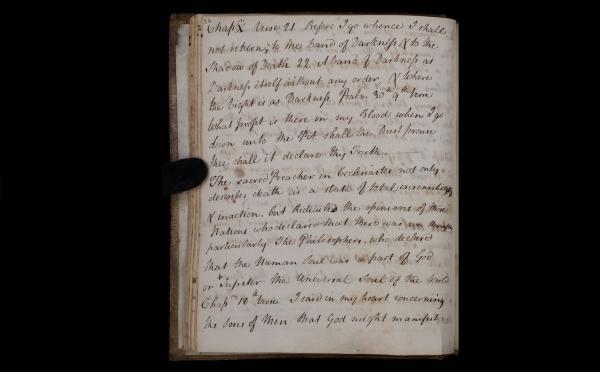 Chap X Verse 21 Before I go whence I shall
not return; to the Land of Darkness & to the
Shadow of Death 22 A Land of Darkness as
Darkness itself without any order, & Where
the Light is as Darkness Psalm 30th 9th Verse
What profit is there in my Blood when I go
down unto the Pit shall the Dust praise
thee shall it declare thy Truth.
The sacred Preacher in Ecclesiastes not only
describes death as a state of total insensibility
& inaction, but Rediculed the opinions of those
Nations who declared that there was an
particularly The Philosophers, who declared
that the Human Soul was a part of God
or Jupiter the Universal Soul of the World
Chap 10th Verse I said in my heart concerning
the Sons of Men that God might manifest